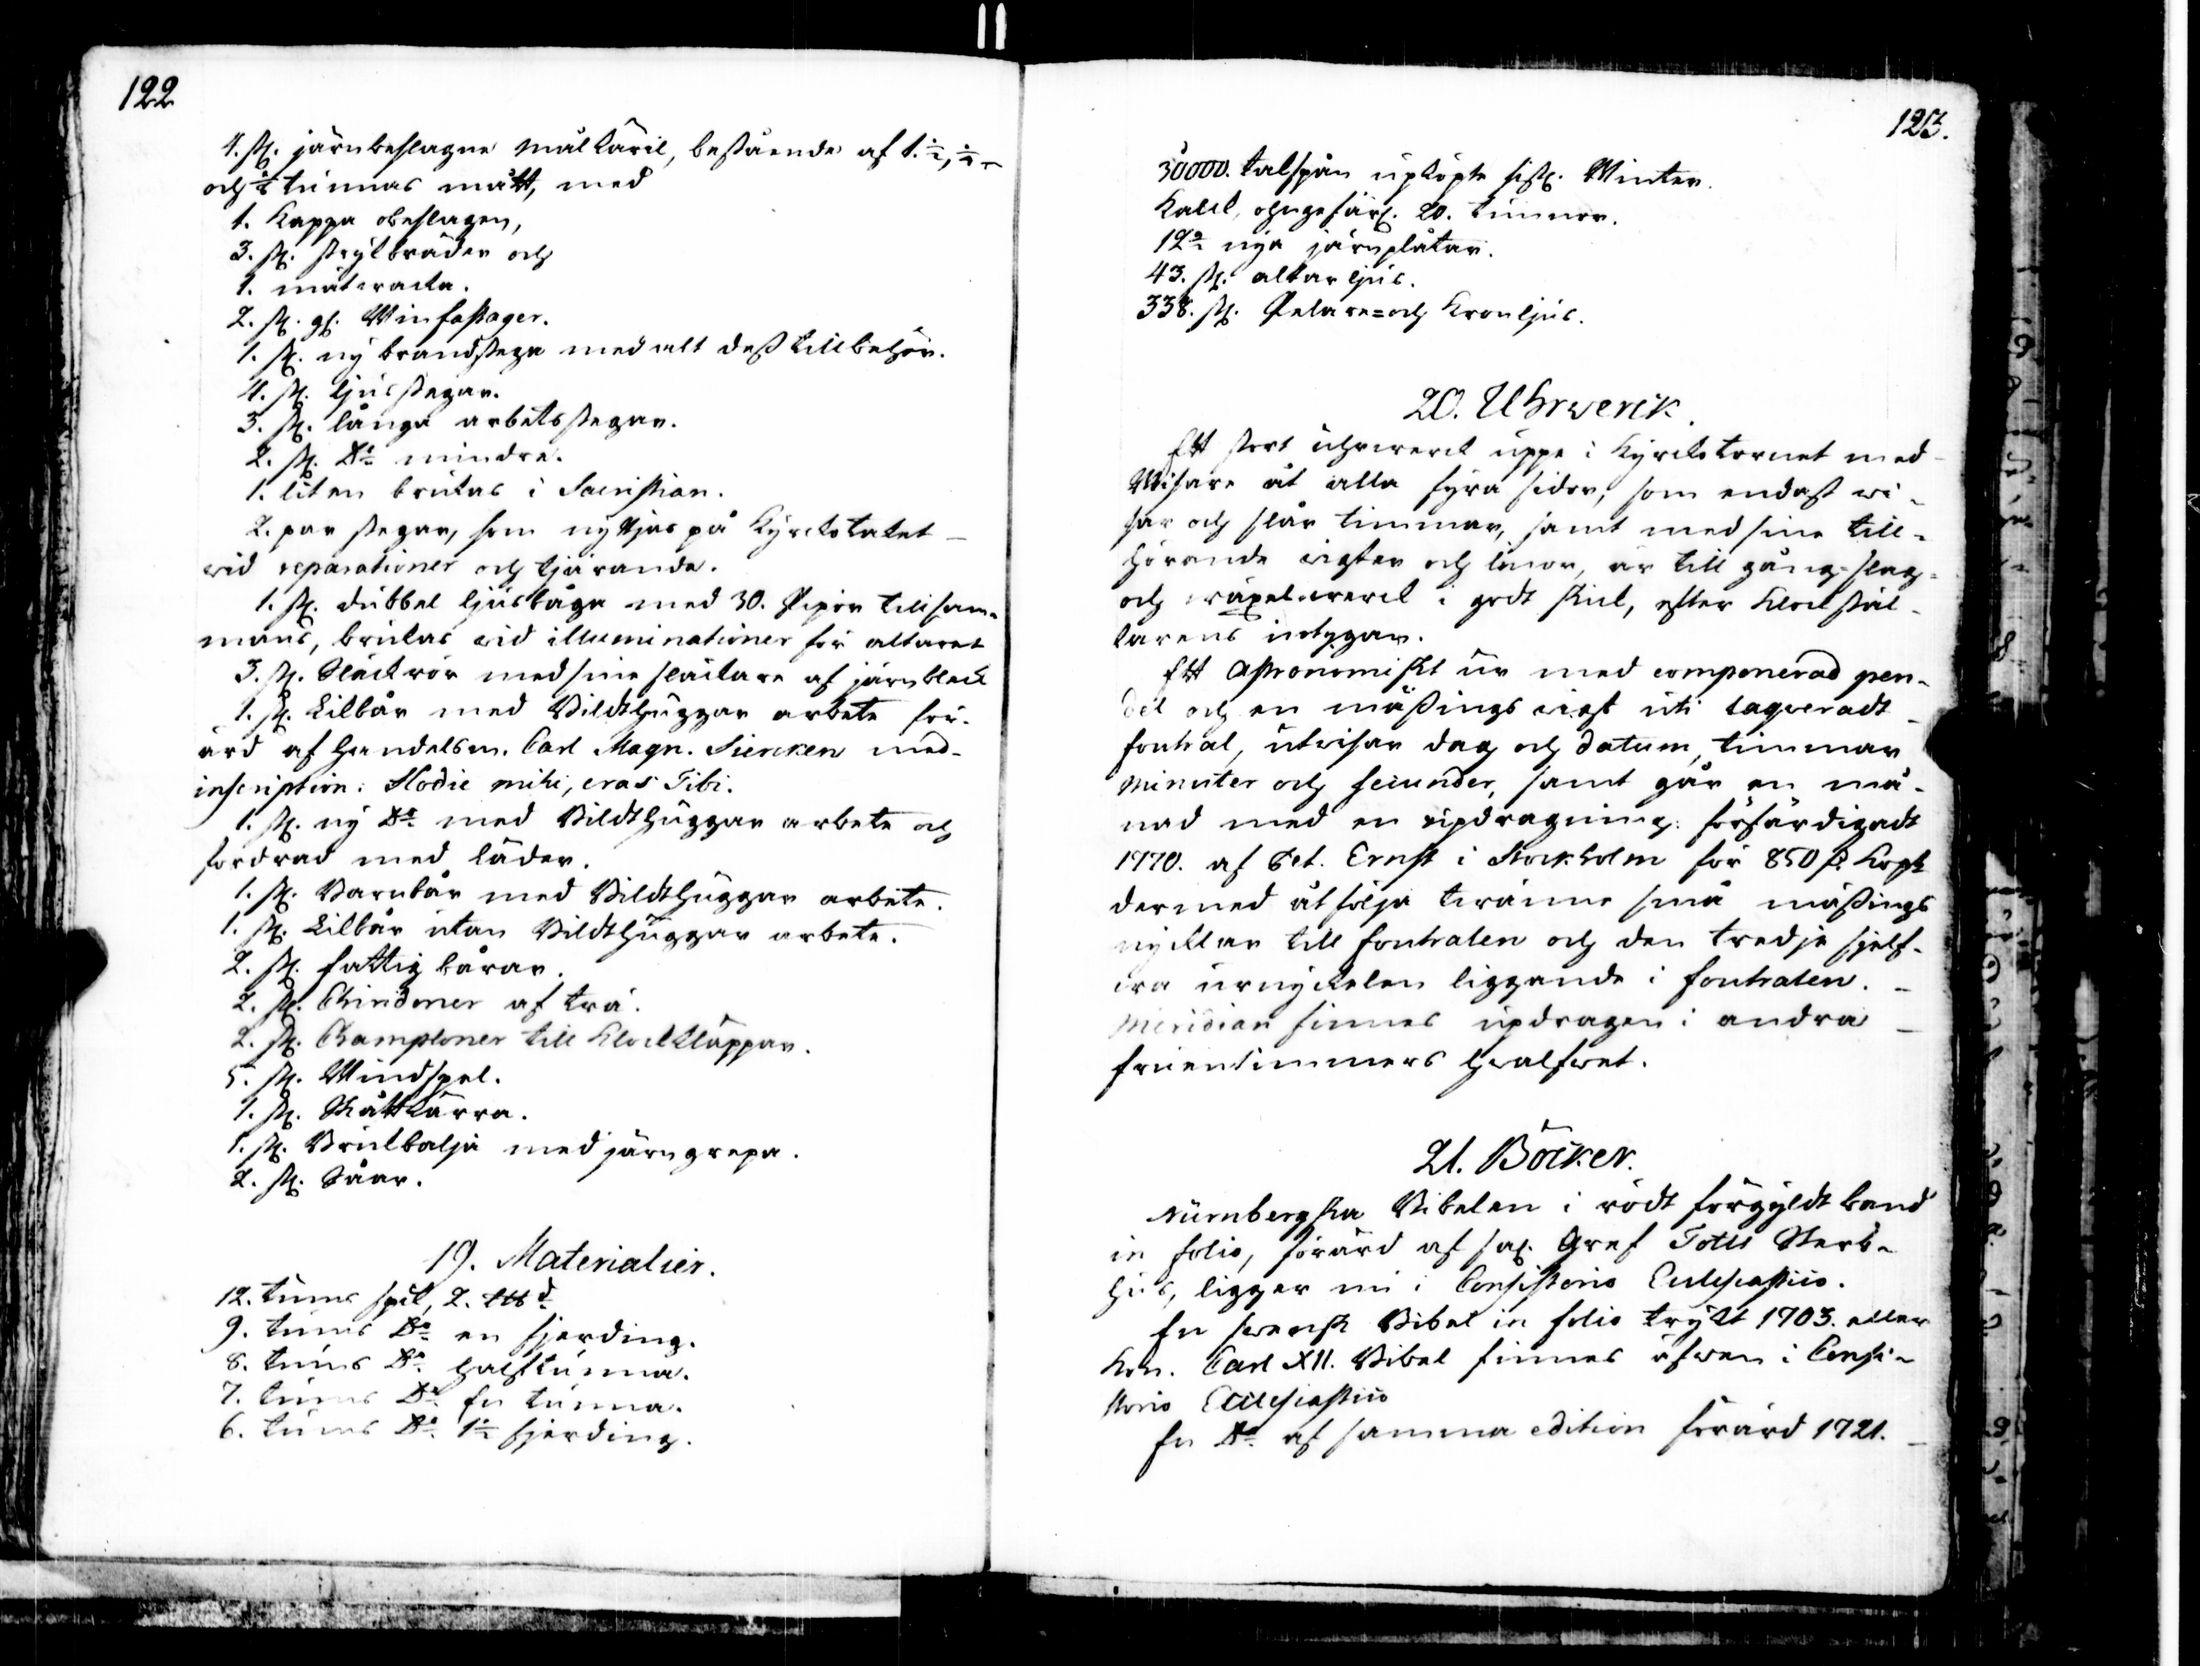 122
4. st. järnbeslagne målkäril, bestående af 1. ½, ¼
och ⅛ tunnas mått, med
1. Kappa obeslagen,
3. st. strykbräden och
1. mätracka.
2. st. gl. Winfastager.
1. st. ny brandstega med alt dess tillbehör.
4. st. ljusstegar.
3. st. långa arbetsstegar.
2. st. Do mindre.
1. liten brukas i Sacristian.
2. par stegar, som nyttjas på Kyrckotaket
wid reparationer och tjärande.
1. st. dubbel ljusbåga med 30. Pipor tillsam-
mans, brukas wid illuminationer för altaret
3. st. Släckrör med sine släckare af järnbleck
1. st. Likbår med Bildthuggar arbete för-
ärd af Handelsm. Carl Magn. Siercken med
inscription: Hodie mihi, cras Tibi.
1. st. ny Do med Bildthuggar arbete och
fordrad med läder.
1. st. Barnbår med Bildthuggar arbete.
1. st. Likbår utan Bildthuggar arbete.
2. st. fattigbårar.
2. st. Chindoner af trä.
2. st. Champloner till Klockkläppar.
5. st. Windspel.
1. st. Skättkärra.
1. st. Brukbalja med järngrepa.
2. st. Såar.
19. Materialier.
12. tums spik, 2. ttd
9. tums Do en fjerding.
8. tums Do halftunna.
7. tums Do En tunna.
6. tums Do 1½ fjerding.
123.
30000. takspån upköpte sistl. Winter.
Kalck, ohngefärl. 20. tunnor.
12 nya järnplåtar.
43. st. altarljus.
338. st. Pelare= och Kronljus.
20. Uhrwerck.
Ett stort uhrwerck uppe i Kyrckotornet med
Wisare åt alla fyra sidor, som endast wi-
sar och slår timmar, samt med sine till-
hörande wigter och linor, är till gång- slag-
och wäxelwerck i godt skick, efter Klockstäl-
larens intygan.
Ett Astronomiskt ur med componerad pen-
del och en mässings wigt uti laqveradt
fontral, utwisar dag och datum, timmar
minuter och secunder, samt går en må-
nad med en updragning: förfärdigadt
1770. af Pet. Ernst i Stockholm för 850 Kopt
dermed åtfölja twänne små mässings
nycklar till fontralen och den tredje sjelf-
wa urnyckelen liggande i fontralen.
Meridian finnes updragen i andra
fruentimmers hwalfwet.
21. Böcker.
Nürnbergska Bibelen i rödt förgyldt band
in folio, förärd af sal. Gref Totts Sterb-
hus, ligger nu i Consistorio Ecclesiastico.
En swensk Bibel in folio tryckt 1703. eller
Kon. Carl XII. Bibel finnes äfwen i Consi-
storio Ecclesiastico
En Do af samma edition förärd 1721.